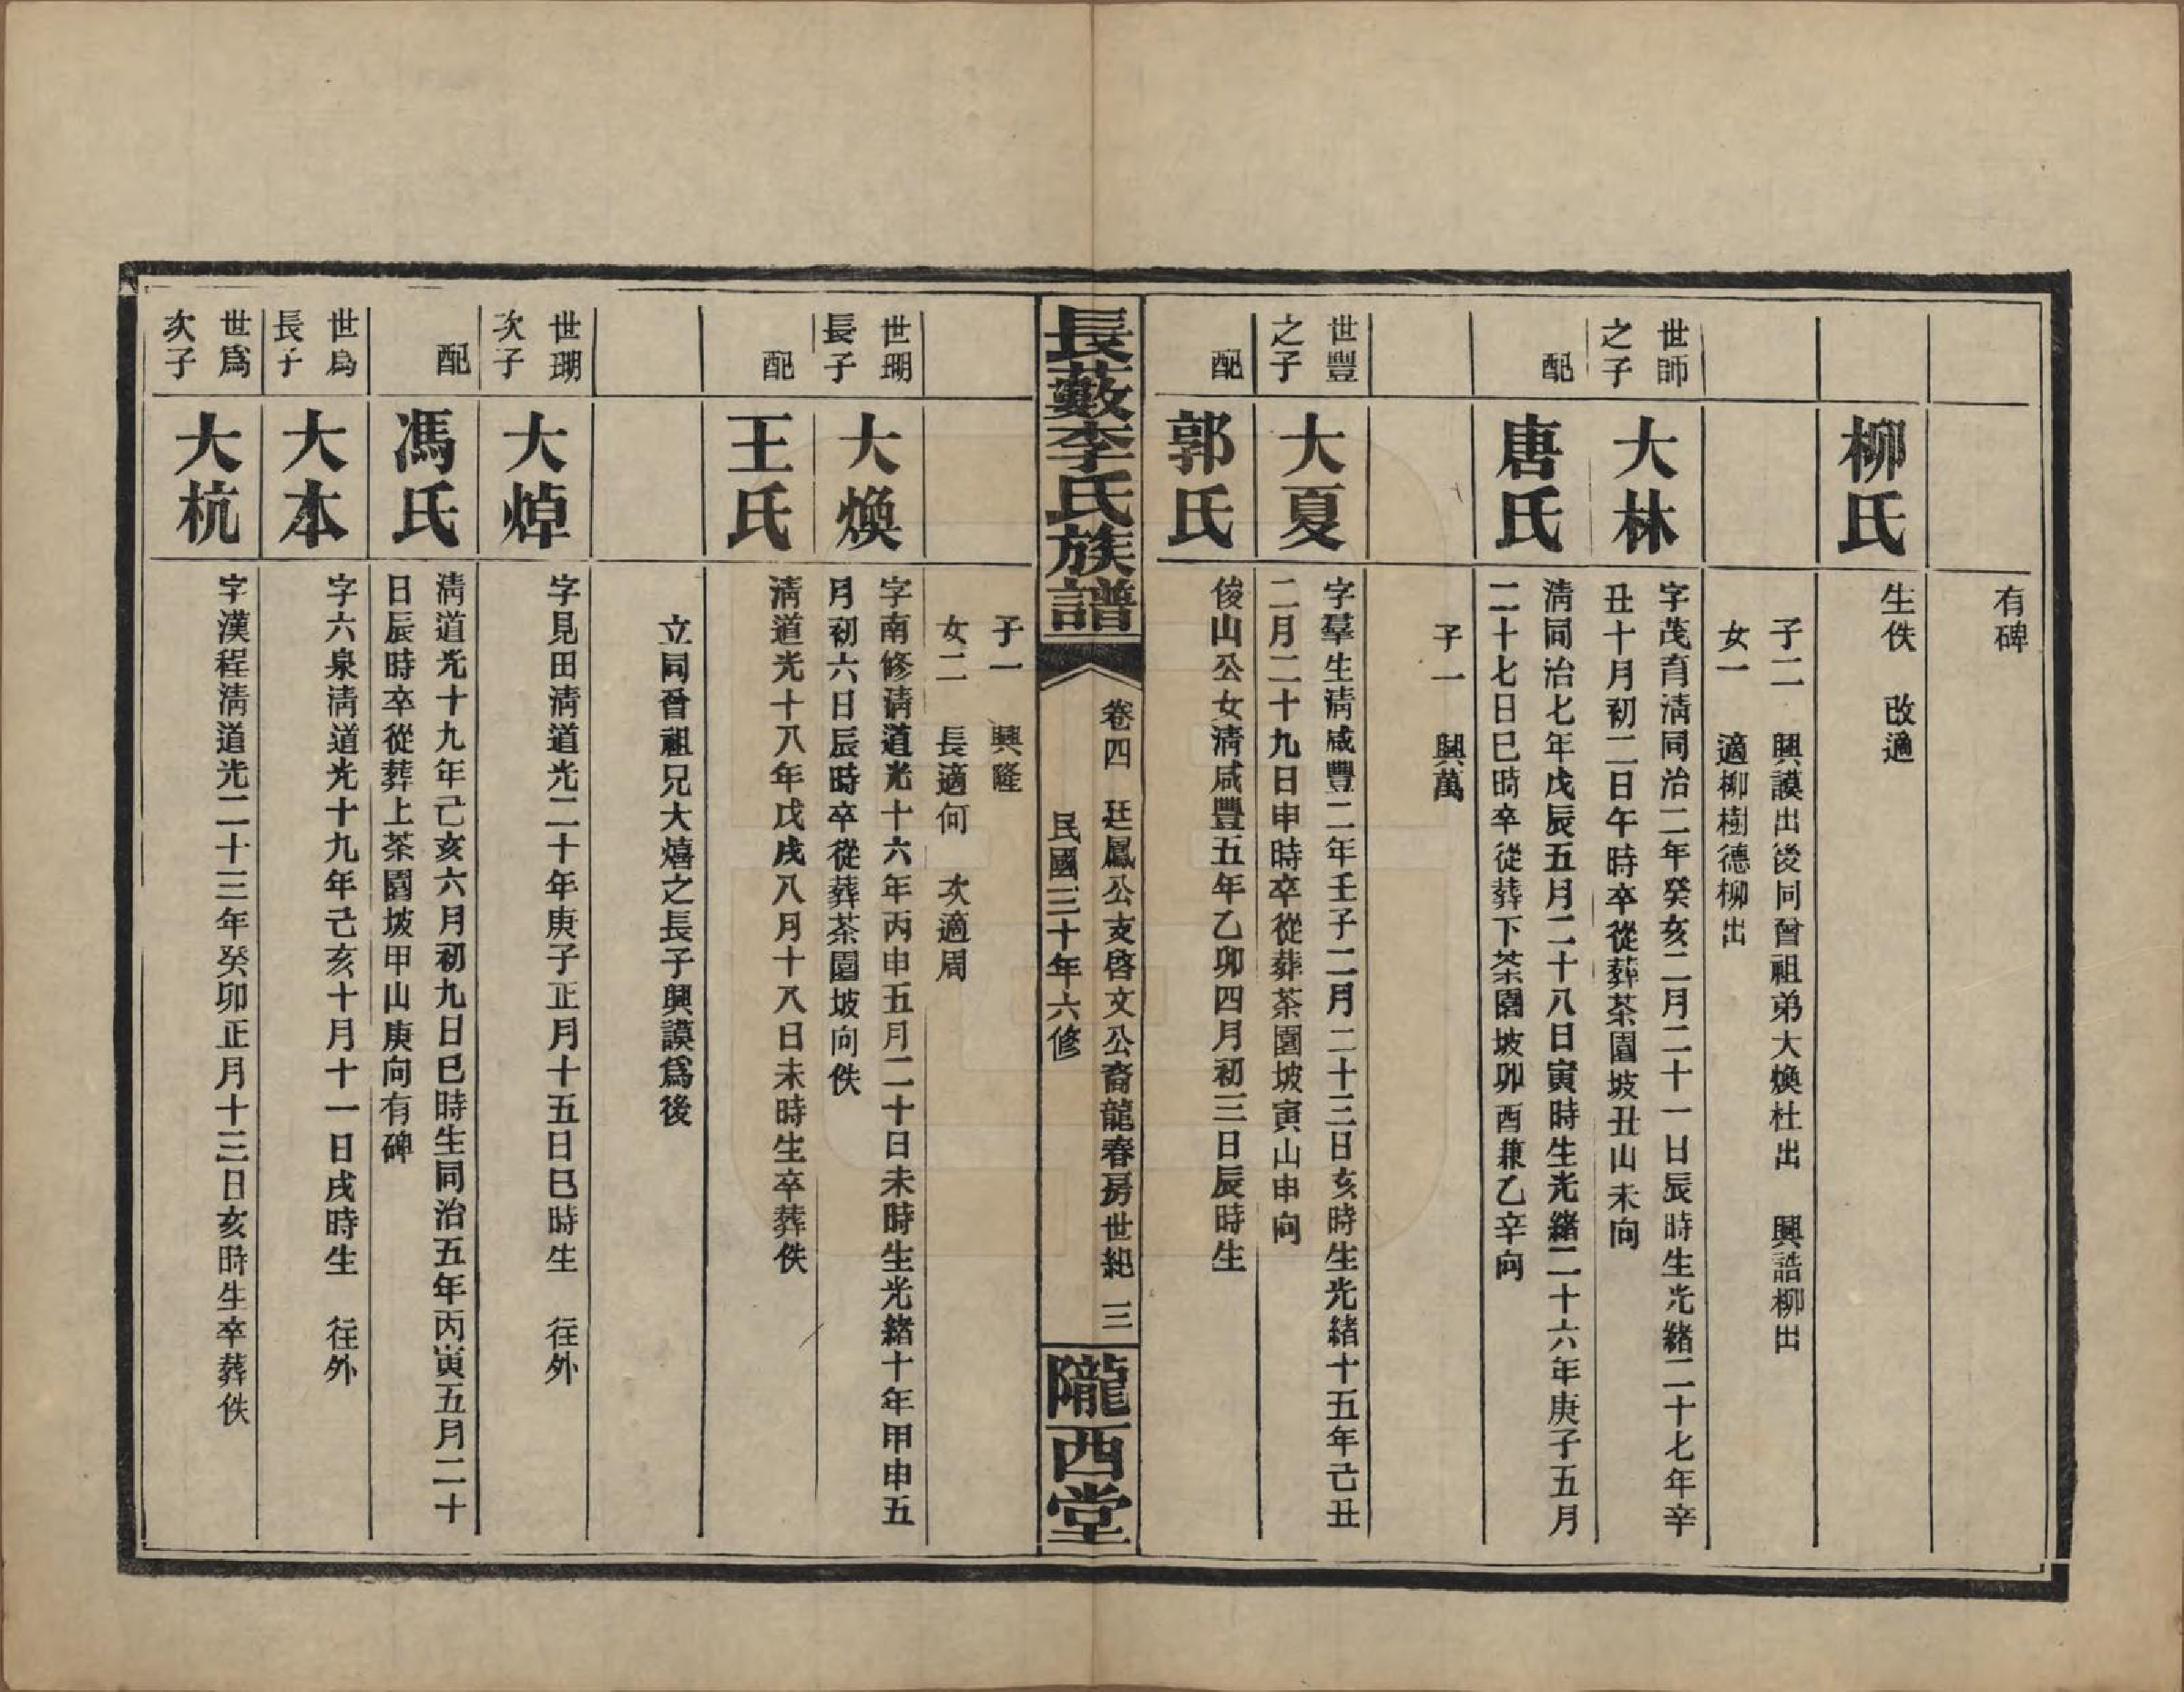 有碑
柳氏
生佚　改適
子二　興謨出後同曾祖弟大煥杜出　興誥柳出
女一　適柳樹德柳出
世師
之子
大林
字茂育淸同治二年癸亥二月二十一日辰時生光緖二十七年辛
丑十月初二日午時卒從葬茶園坡丑山未向
配
唐氏
淸同治七年戊辰五月二十八日寅時生光緖二十六年庚子五月
二十七日巳時卒從葬下茶園坡卯酉兼乙辛向
子一　興萬
世豐
之子
大夏
字羣生淸咸豐二年壬子二月二十三日亥時生光緖十五年己丑
二月二十九日申時卒從葬茶園坡寅山申向
配
郭氏
俊山公女淸咸豐五年乙卯四月初三日辰時生
長藪李氏族譜
卷四　廷鳳公支啓文公裔龍春房世紀　三
民國三十年六修
隴西堂
子一　興隆
女二　長適何　次適周
世瑚
長子
大煥
字南修淸道光十六年丙申五月二十日未時生光緖十年甲申五
月初六日辰時卒從葬茶園坡向佚
配
王氏
淸道光十八年戊戌八月十八日未時生卒葬佚
立同曾祖兄大熺之長子興謨爲後
世瑚
次子
大焯
字見田淸道光二十年庚子正月十五日巳時生　往外
配
馮氏
淸道光十九年己亥六月初九日巳時生同治五年丙寅五月二十
日辰時卒從葬上茶園坡甲山庚向有碑
世爲
長子
大本
字六泉淸道光十九年己亥十月十一日戌時生　往外
世爲
次子
大杭
字漢程淸道光二十三年癸卯正月十三日亥時生卒葬佚